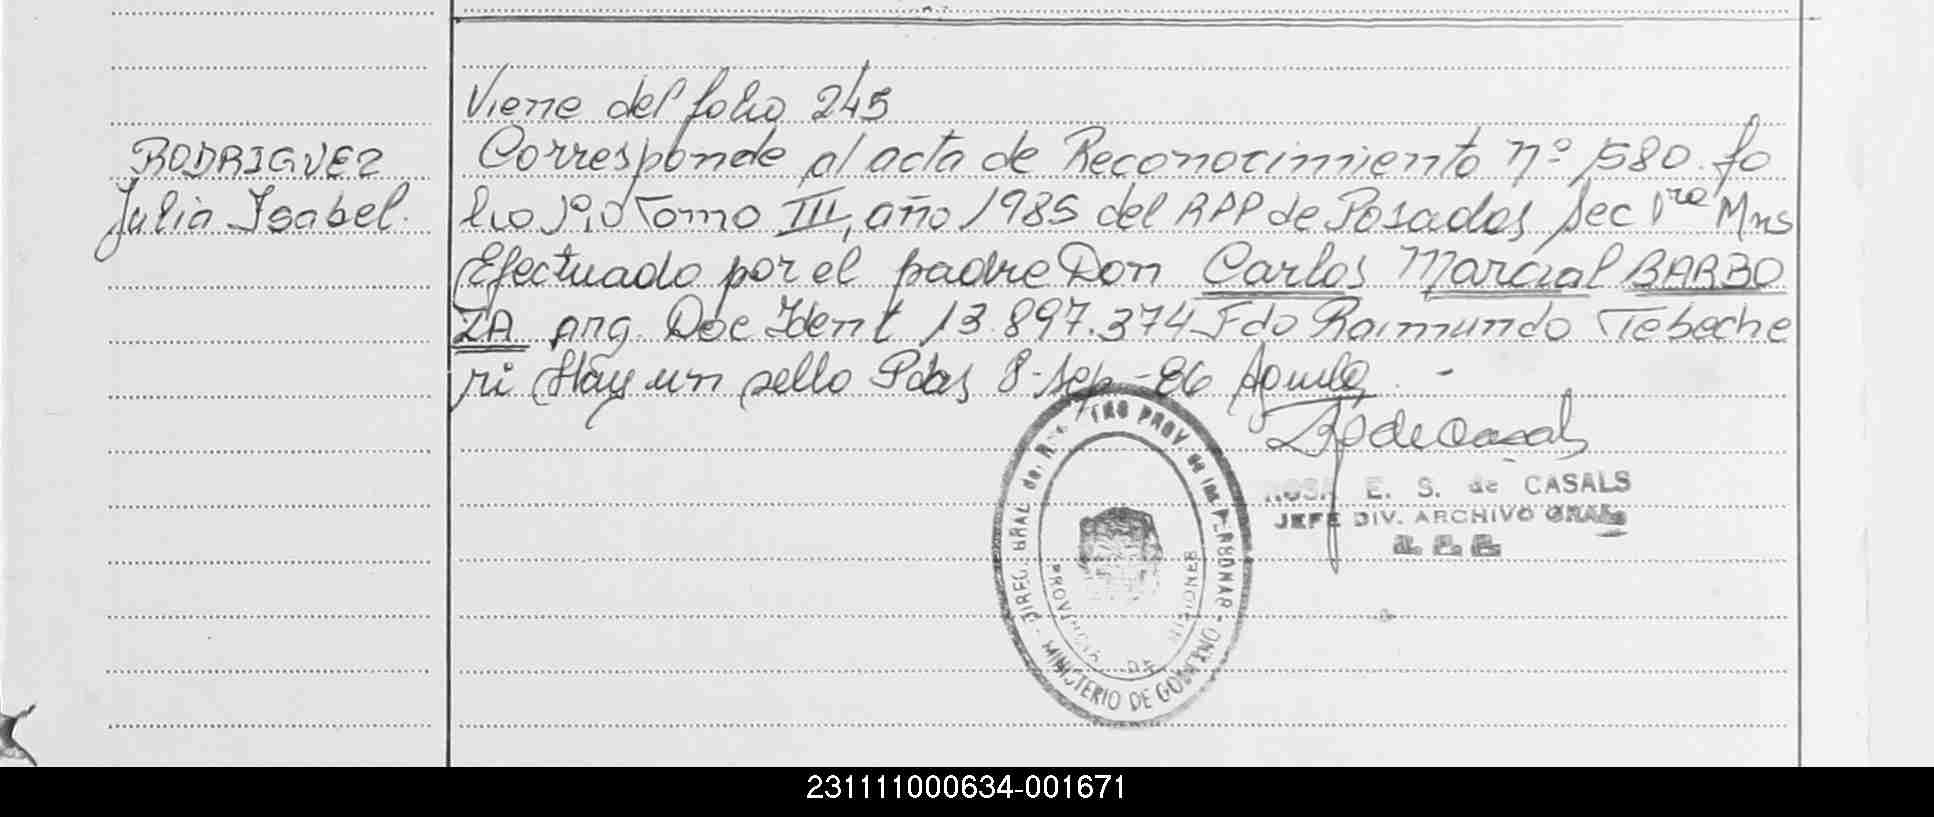 Viene del folio 245
RODRIGUEZ
Julia Isabel.
Corresponde al acta de Reconocimiento nº 1580. fo
lio Tomo III, año 1985 del RPP de Posadas Sec 1ra Mns
Efectuado por el padre Don Carlos Marcial BARBO
ZA arg. Doc Ident 13.897.374 Fdo Raimundo Tebeche
ri Hay un sello Pdas 8-Sep-86
ROSA E. S. de CASALS
JEFE DIV. ARCHIVO GRAL
DIREC. GRAL del PROV. de las PERSONAS - MINISTERIO DE GOBIERNO -
PROVINCIA DE MISIONES
231111000634-001671